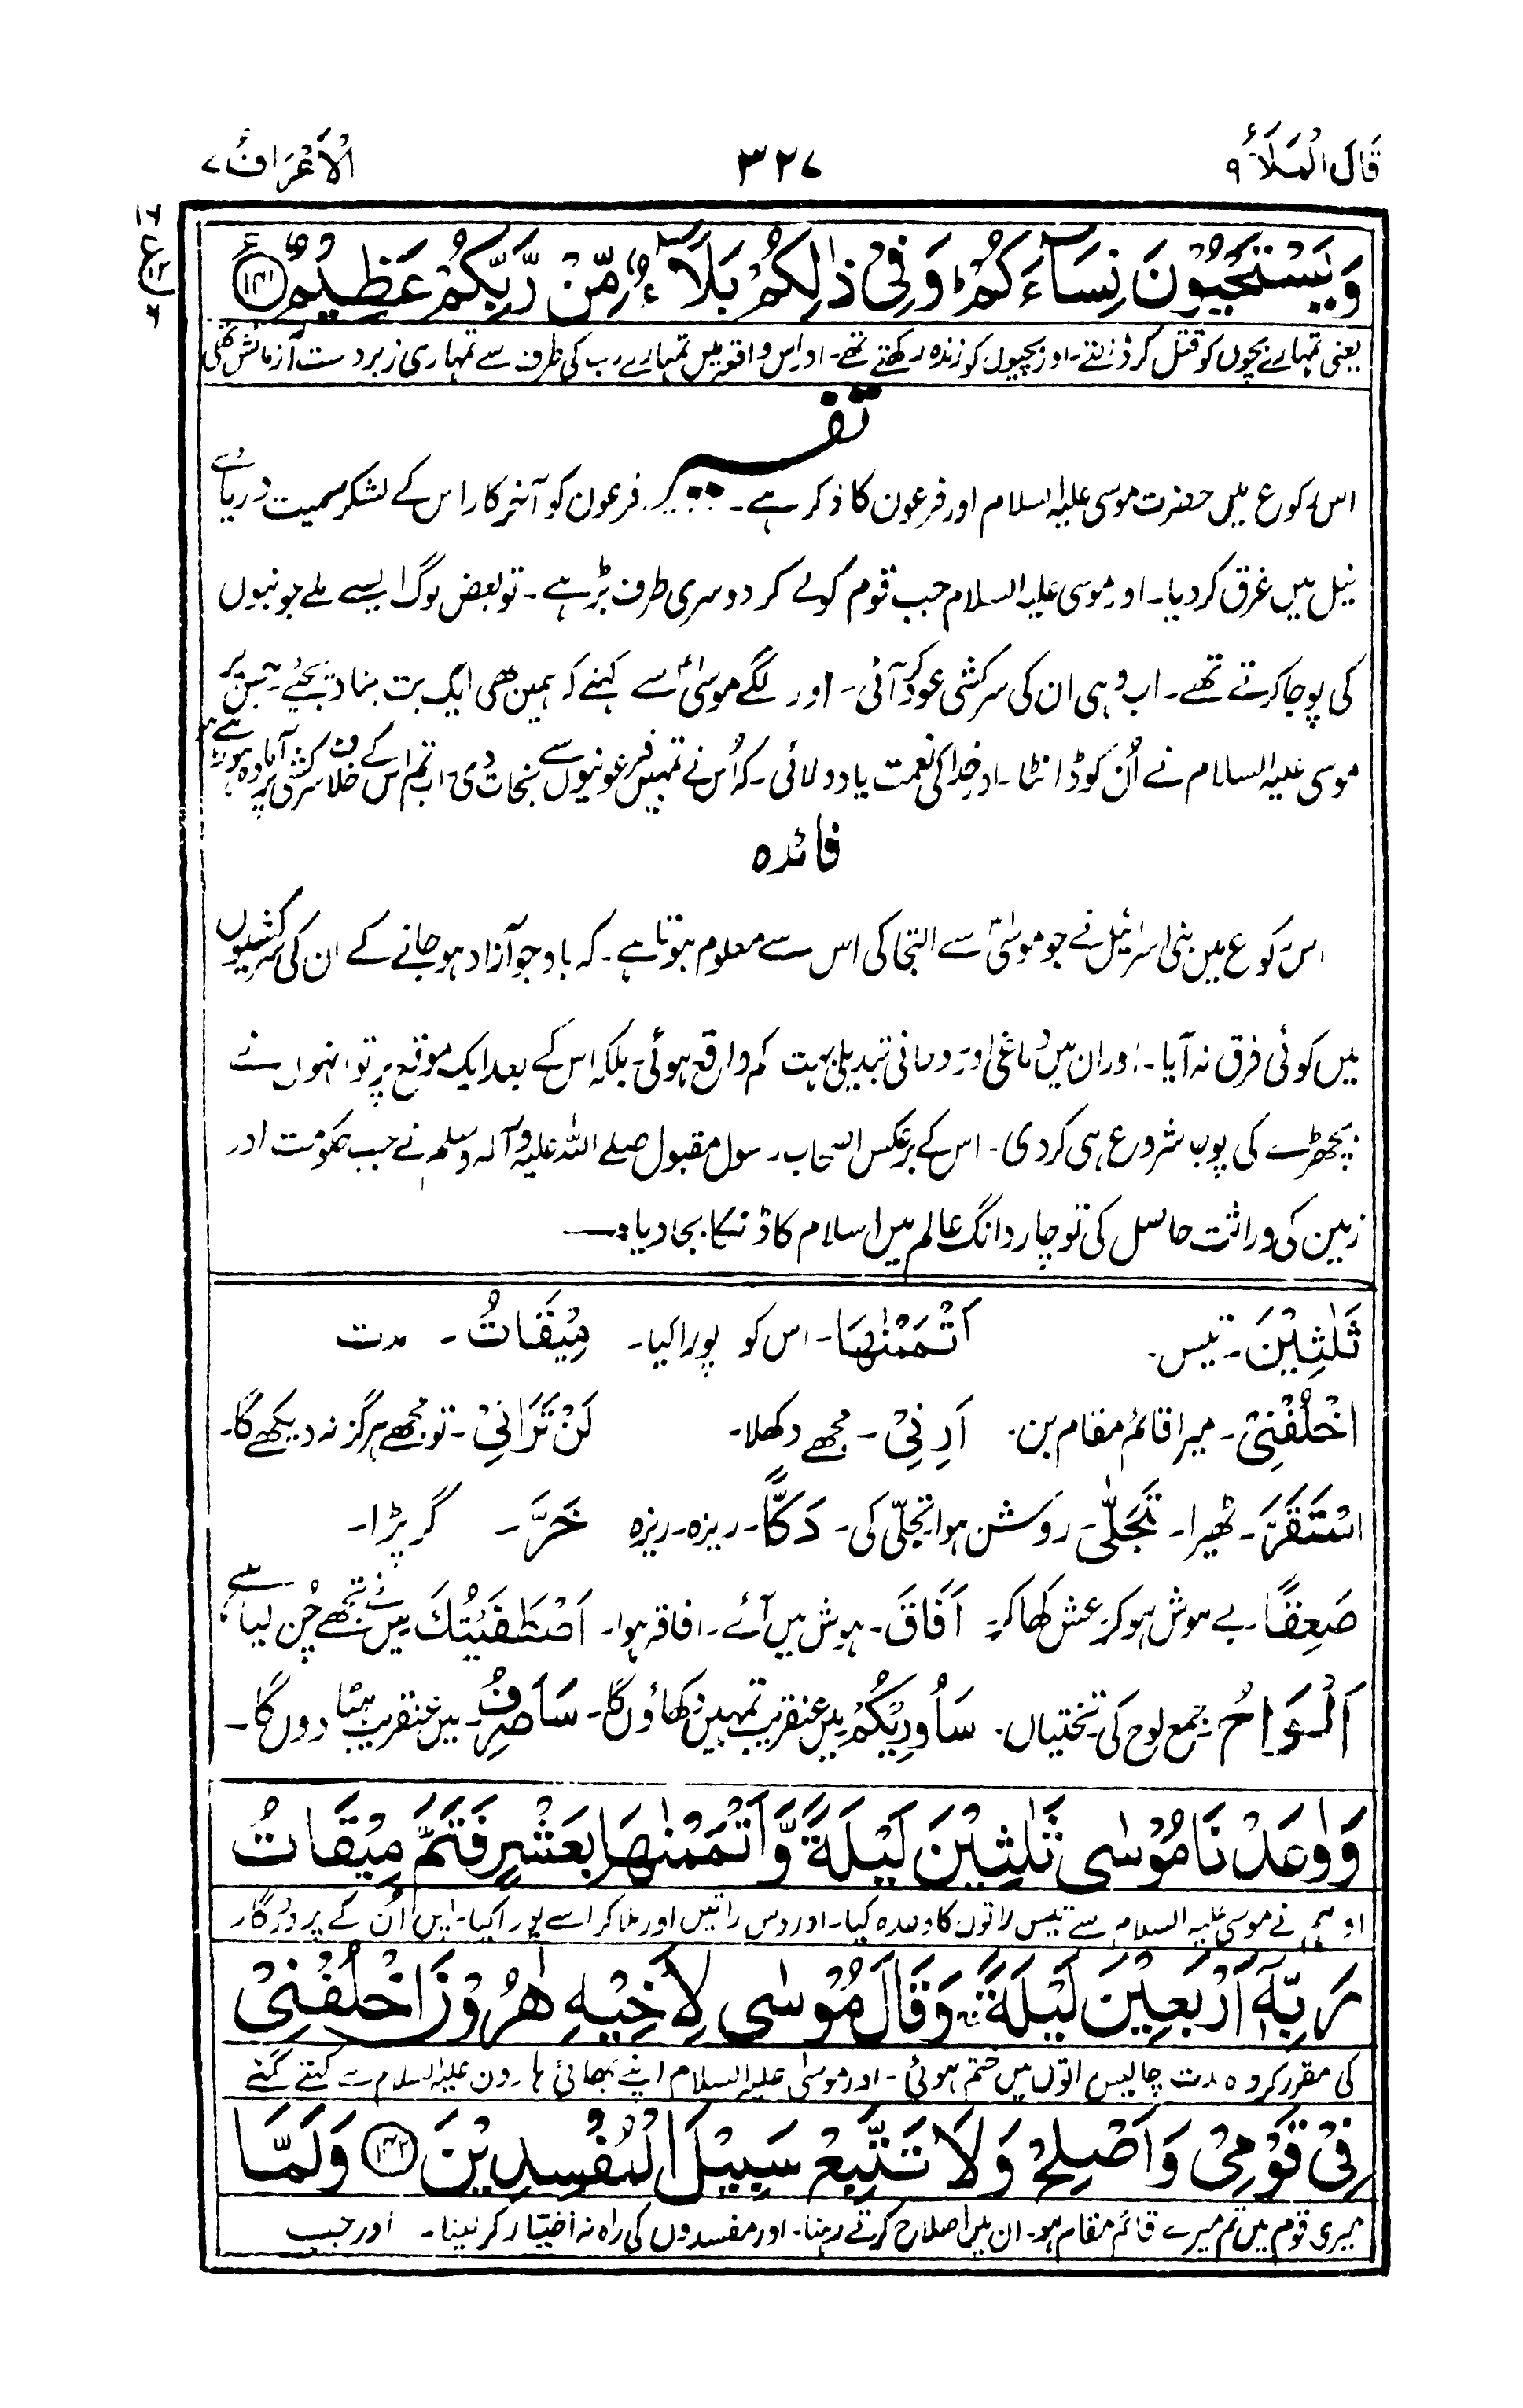 قَالَ الْمَلَاُ ۹
۳۲۷
الْاَعْرَافُ ۷
۱۶
ع
۱۲
۶
وَيَسْتَحْيُوْنَ نِسَآءَكُمْ ؕ وَفِيْ ذٰلِكُمْ بَلَآءٌ مِّنْ رَّبِّكُمْ عَظِيْمٌ ۱۴۱
یعنی تمہارے بچوں کو قتل کر ڈالتے۔ اور بچیوں کو زندہ رکھتے تھے۔ اور اس واقعہ میں تمہارے رب کی طرف سے تمہاری زبردست آزمائش تھی
تفسیر
اس رکوع میں حضرت موسی علیہ السلام اور فرعون کا ذکر ہے۔ فرعون کو آخر کار اس کے لشکر سمیت دریائے
نیل میں غرق کر دیا۔ اور موسی علیہ السلام جب قوم کو لے کر دوسری طرف بڑہے۔ تو بعض لوگ ایسے ملے جو بتوں
کی پوجا کرتے تھے۔ اب وہی ان کی سرکشی عود کر آئی۔ اور لگے موسیٰؑ سے کہنے کہ ہمیں بھی ایک بت بنا دیجئے۔
موسی علیہ السلام نے اُن کو ڈانٹا۔ اور خدا کی نعمت یاد دلائی۔ کہ اُس نے تمہیں فرعونیوں سے نجات دی اب تم اس کے خلاف سرکشی پر آمادہ ہو
فائدہ
اس رکوع میں بنی اسرائیل نے جو موسیٰؑ سے التجا کی اس سے معلوم ہوتا ہے۔ کہ باوجود آزاد ہو جانے کے ان کی سرکشیوں
میں کوئی فرق نہ آیا۔ اور ان میں دماغی اور روحانی تبدیلی بہت کم واقع ہوئی۔ بلکہ اس کے بعد ایک موقع پر تو انہوں نے
بچھڑے کی پوجا شروع ہی کر دی۔ اس کے برعکس اصحاب رسول مقبول صلے اللہ علیہ وآلہ وسلم نے جب حکومت اور
زمین کی وراثت حاصل کی تو چار دانگ عالم میں اسلام کا ڈنکا بجا دیا۔
ثَلٰثِيْنَ۔ تیس۔ اَتْمَمْنٰهَا۔ اس کو پورا کیا۔ مِيْقَاتُ۔ مدت
اخْلُفْنِيْ۔ میرا قائم مقام بن۔ اَرِنِيْ۔ مجھے دکھلا۔ لَنْ تَرَانِيْ۔ تو مجھے ہرگز نہ دیکھے گا۔
اسْتَقَرَّ۔ ٹھیرا۔ تَجَلّٰى۔ روشن ہوا تجلّی کی۔ دَكًّا۔ ریزہ۔ ریزہ خَرَّ۔ گر پڑا۔
صَعِقًا۔ بے ہوش ہو کر۔ غش کھا کر۔ اَفَاقَ۔ ہوش میں آئے۔ افاقہ ہوا۔ اصْطَفَيْتُكَ میں نے تجھے چُن لیا ہے
اَلْوَاحُ جمع لوح کی تختیاں۔ سَاُورِيْكُمْ میں عنقریب تمہیں دکھاؤں گا۔ سَاَصْرِفُ۔ میں عنقریب ہٹا دوں گا۔
وَوٰعَدْنَا مُوْسٰى ثَلٰثِيْنَ لَيْلَةً وَّاَتْمَمْنٰهَا بِعَشْرٍ فَتَمَّ مِيْقَاتُ
اور ہم نے موسی علیہ السلام سے تیس راتوں کا وعدہ کیا۔ اور دس راتیں اور ملا کر اسے پورا کیا۔ اُن کے پروردگار
رَبِّهٖٓ اَرْبَعِيْنَ لَيْلَةً ۚ وَقَالَ مُوْسٰى لِاَخِيْهِ هٰرُوْنَ اخْلُفْنِيْ
کی مقرر کردہ مدت چالیس راتوں میں ختم ہوئی۔ اور موسیٰ علیہ السلام اپنے بھائی ہارون علیہ السلام سے کہتے گئے
فِيْ قَوْمِيْ وَاَصْلِحْ وَلَا تَتَّبِعْ سَبِيْلَ الْمُفْسِدِيْنَ ۱۴۲ وَلَمَّا
میری قوم میں تم میرے قائم مقام ہو۔ ان میں اصلاح کرتے رہنا۔ اور مفسدوں کی راہ نہ اختیار کر لینا۔ اور جب